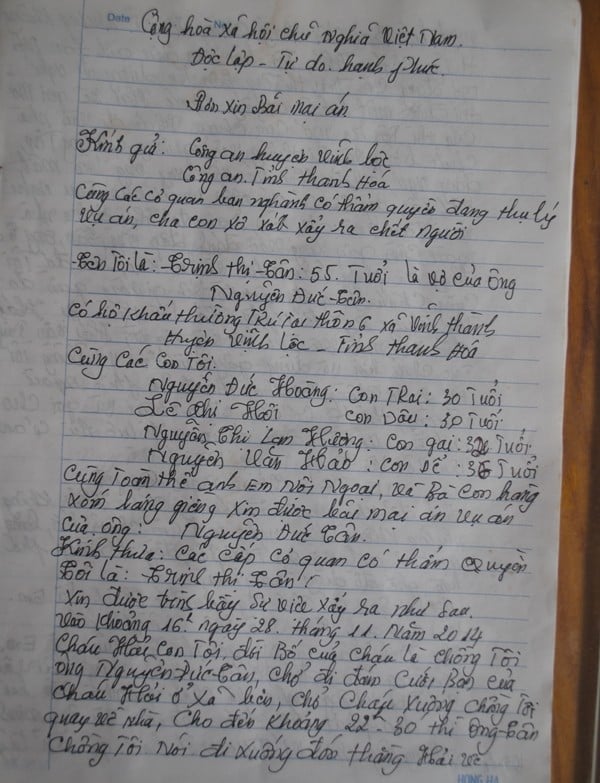 Date No
Cộng hoà xã hội chủ nghĩa Việt Nam.
Độc lập - Tự do. hạnh phúc.
Đơn xin Bãi mại án
Kính gửi: Công an huyện Vĩnh lộc
Công an. Tỉnh thanh Hoá
Cùng các cơ quan ban nghành có thẩm quyền đang thụ lý
vụ án, cha con xô xát xảy ra chết người
-Tên Tôi là: -Trịnh thị -Tân: 55. Tuổi là vợ của Ông
Nguyễn Đức -Tân.
có hộ khẩu thường trú tại thôn 6 xã Vĩnh thành
Huyện Vĩnh Lộc - Tỉnh thanh Hoá
Cùng các con Tôi.
Nguyễn Đức Hoàng: con Trai: 30 Tuổi
Lê thị Hồi con Dâu: 30 Tuổi
Nguyễn Thị Lan Hương: con gái: 32 Tuổi
Nguyễn Văn Hảo: con Rể: 36 Tuổi
Cùng Toàn thể anh Em Nội Ngoại, và Bà Con hàng
xóm láng giềng xin được bãi mại án vụ án
của ông: Nguyễn Đức Tân.
Kính thưa: các cấp cơ quan có thẩm Quyền
Tôi là: -Trịnh thị Tân!
xin được trình bầy sự việc xảy ra như sau.
vào khoảng 16h ngày 28. tháng 11. Năm 2014
Cháu Hải con Tôi, đòi Bố của cháu là chồng Tôi
ông Nguyễn Đức -Tân, chở đi đám cưới Bạn của
cháu Hải ở xã bên, chở cháu xuống chồng Tôi
quay về nhà, cho đến khoảng 22h 30 thì ông -Tân
chồng Tôi nói đi xuống đón thằng Hải về
HỒNG HÀ